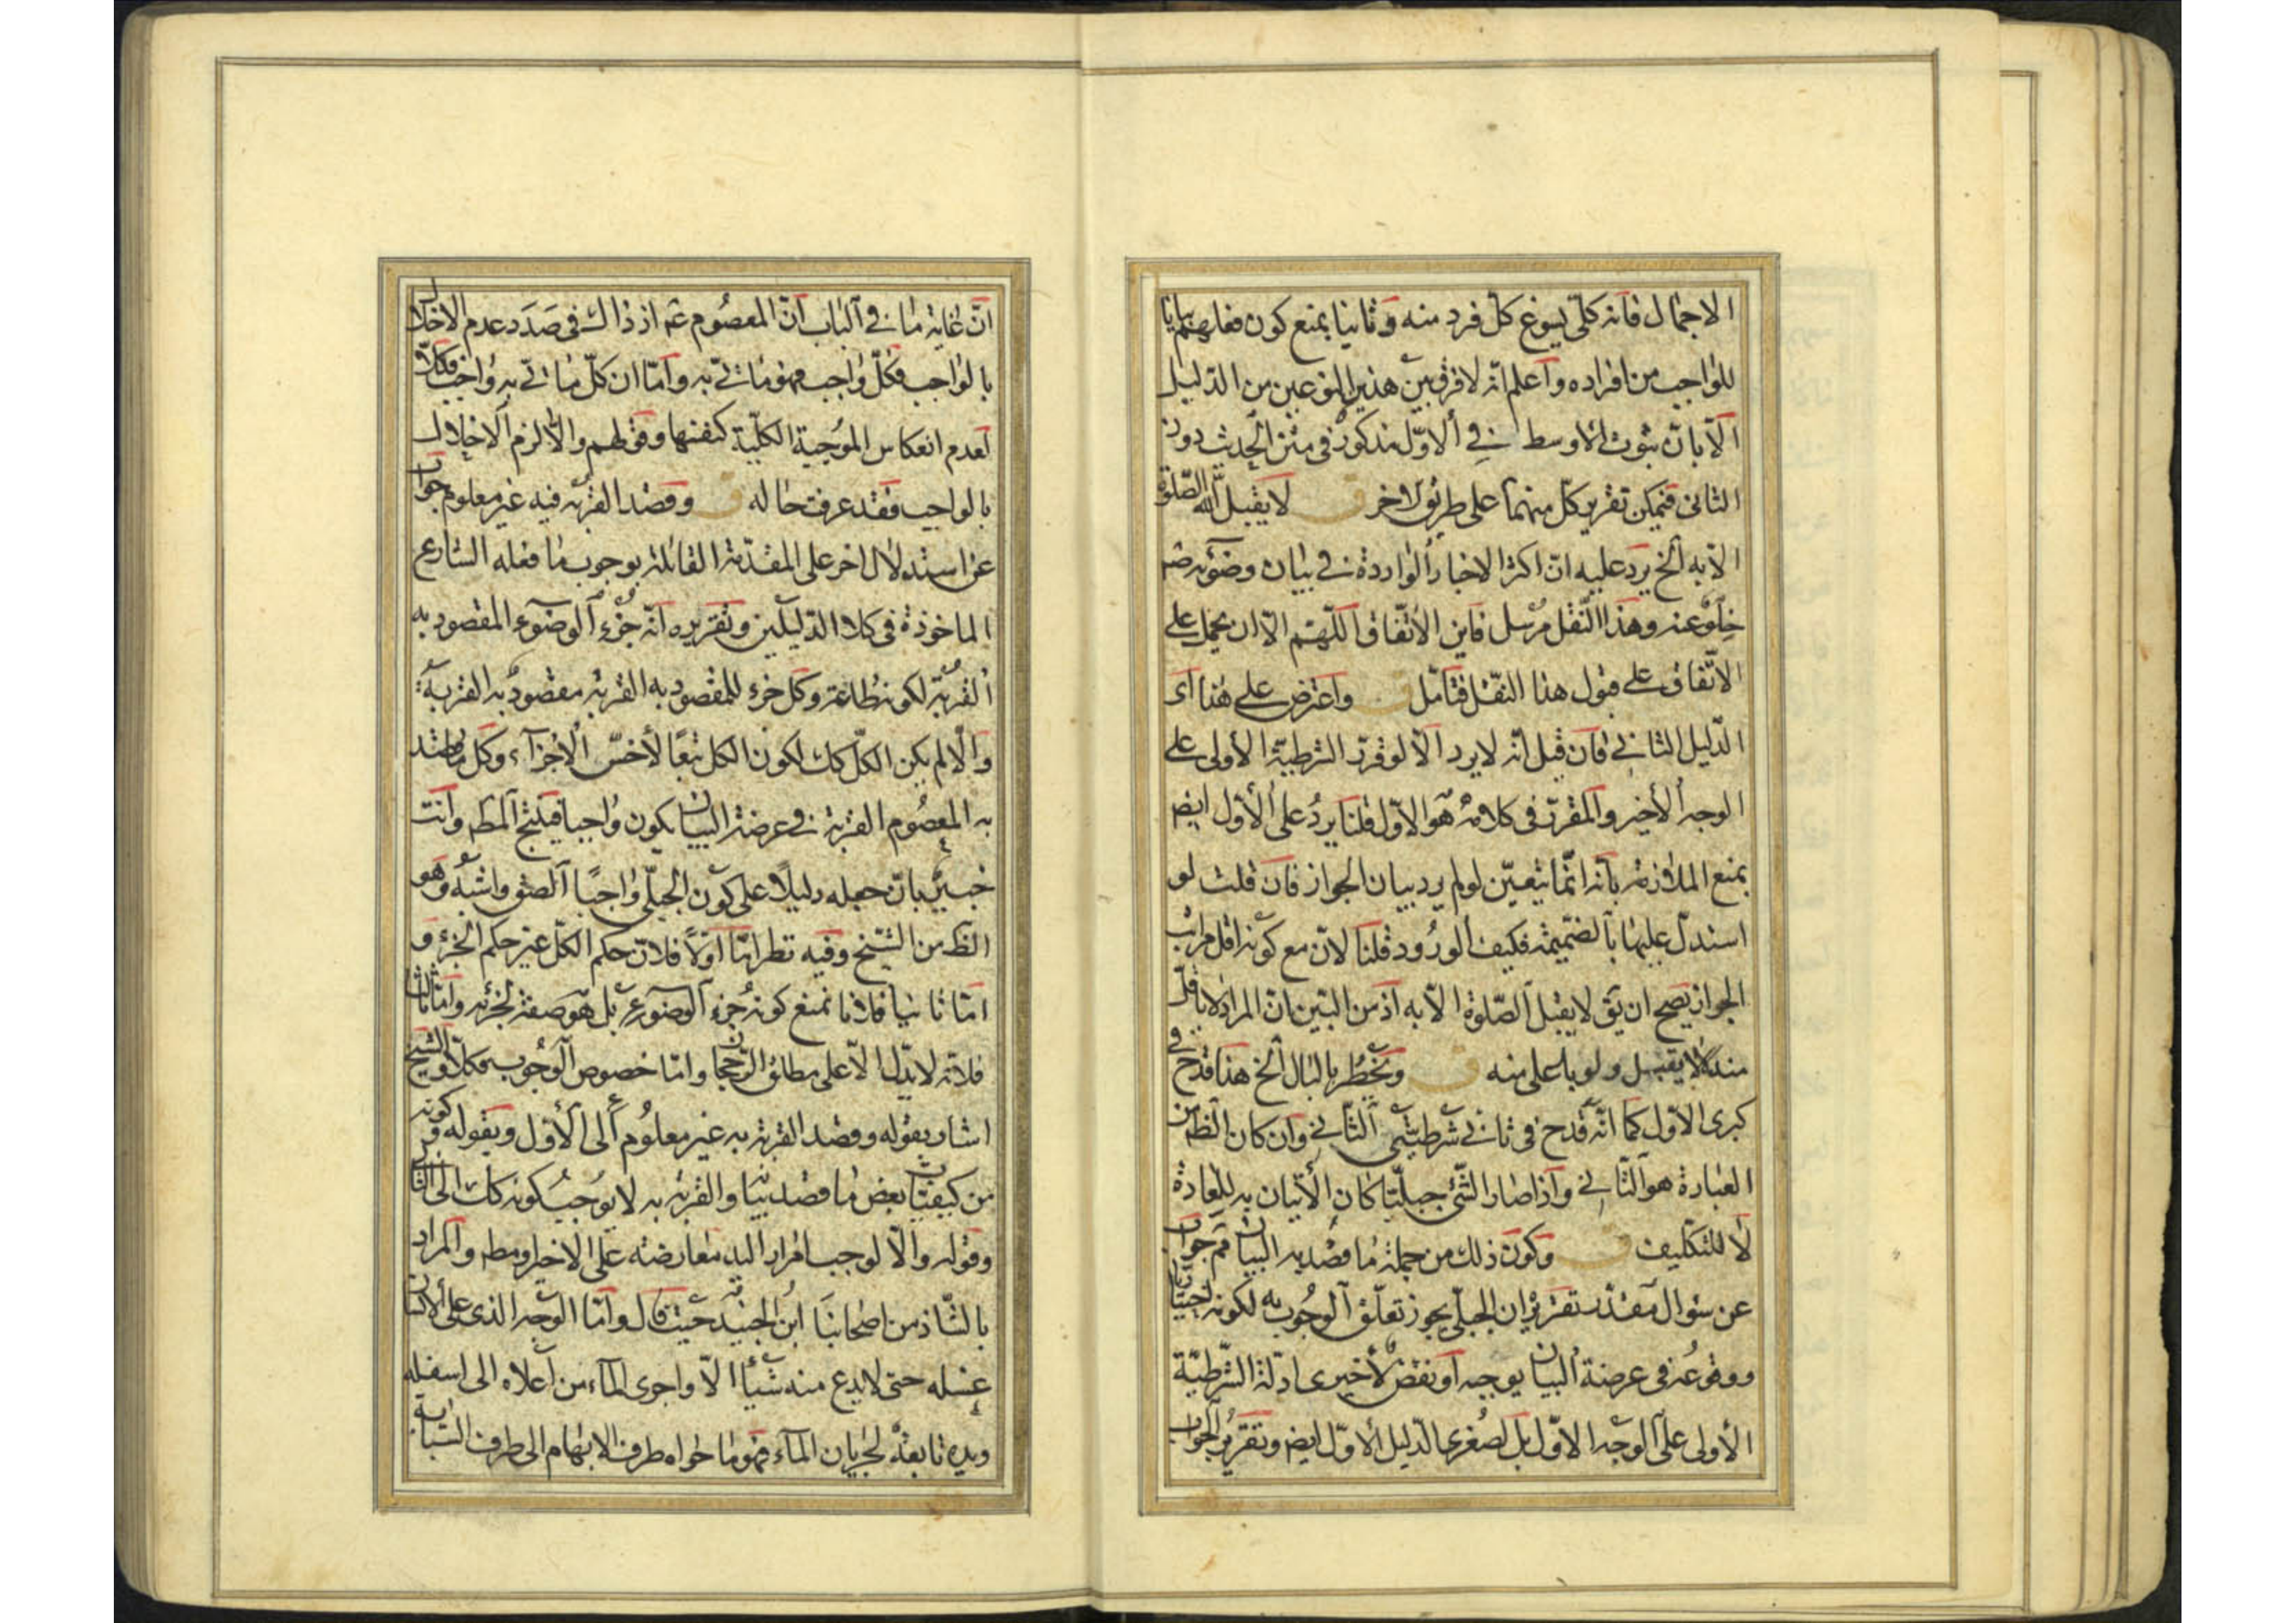 الاجمال فانه كلى يسوغ كل فرد منه وثانيا بمنع كون فعلهم بيانا
للواجب من افراده واعلم انه لا فرق بين هذين النوعين من الدليل
الا بان ثبوت الاوسط في الاول مذكور في متن الحديث دون
الثانى فيمكن تقرير كل منهما على طريق الاخر ق لا يقبل الله الصلوة
الا به الخ يرد عليه ان اكثر الاخبار الواردة في بيان وضوئه صم
خلو عنه وهذا النقل مرسل فاين الاتفاق اللهم الا ان يحمل على
الاتفاق على قبول هذا النقل فتامل ق واعترض على هذا اى
الدليل الثاني فان قيل انه لا يرد الا لو قرر الشرطية الاولى على
الوجه الاخير والمقرر في كلامه هو الاول قلنا يرد على الاول ايض
بمنع الملازمة بانه انما يتعين لو لم يرد بيان الجواز فان قلت لو
استدل عليها بالضميمة فكيف الورود قلنا لان مع كونه اقل مراتب
الجواز يصح ان يق لا يقبل الصلوة الا به اذ من البين ان المراد لا باقل
منه لا يقبل ولو باعلى منه ق ويخطر بالبال الخ هذا قدح في
كبرى الاول كما انه قدح في ثاني شرطيتى الثاني وان كان الظ من
العبارة هو الثاني واذا صار الشئ جبليا كان الاتيان به للعادة
لا للتكليف ق وكون ذلك من جملة ما قصد به البيان فم جواب
عن سؤال مقدر تقريره ان الجبلى يجوز تعلق الوجوب به لكونه
ووقوعه في عرضة البيان يوجبه او نقض لأخيرى ادلة الشرطية
الأولى على الوجه الاول بل لصغرى الدليل الاول ايض وتقرير الجواب
ان غاية ما في الباب ان المعصوم عم اذ ذاك في صدد عدم الاخلال
بالواجب فكل واجب فهو ماتي به واما ان كل ماتي به واجب فكلا و
لعدم انعكاس الموجبة الكلية كنفسها وقولهم والا لزم الاخلال
بالواجب فقد عرفت حاله ق وقصد القربة فيه غير معلوم جواب
عن استدلال اخر على المقدمة القائلة بوجوب ما فعله الشارع
الماخوذة في كلا الدليلين وتقريره انه جزء الوضوء المقصود به
القربة لكونه طاعة وكل جزء للمقصود به القربة مقصود به القربة
والا لم يكن الكل كك لكون الكل تبعا لأخس الاجزاء وكل ما قصد
به المعصوم القربة في عرضة البيان يكون واجبا فينتج المط وانت
خبير بان جعله دليلا على كون الجبلى واجبا الصق واشبه وهو
الظ من الشيخ وفيه نظر اما اولا فلان حكم الكل غير حكم الجزء و
اما ثانيا فلانا نمنع كونه جزء الوضوء بل هو صفة لجزئه واما ثالثا
فلانه لا يدل الا على مطلق الرجحان واما خصوص الوجوب فكلا والشيخ
اشار بقوله وقصد القربة به غير معلوم الى الأول وبقوله وكونه
من كيفيات بعض ما قصد بيانه والقربة به لا يوجب كونه كك الى الثانى
وقوله والا لوجب امرار اليد معارضته على الاخير ومط والمراد
بالشاذ من اصحابنا ابن الجنيد حيث قال واما الوجه الذى على الانسان
غسله حتى لا يدع منه شيئا الا واجرى الماء من اعلاه الى اسفله
ويده تابعة لجريان الماء فهو ما حواه طرف الابهام الى طرف السبابة